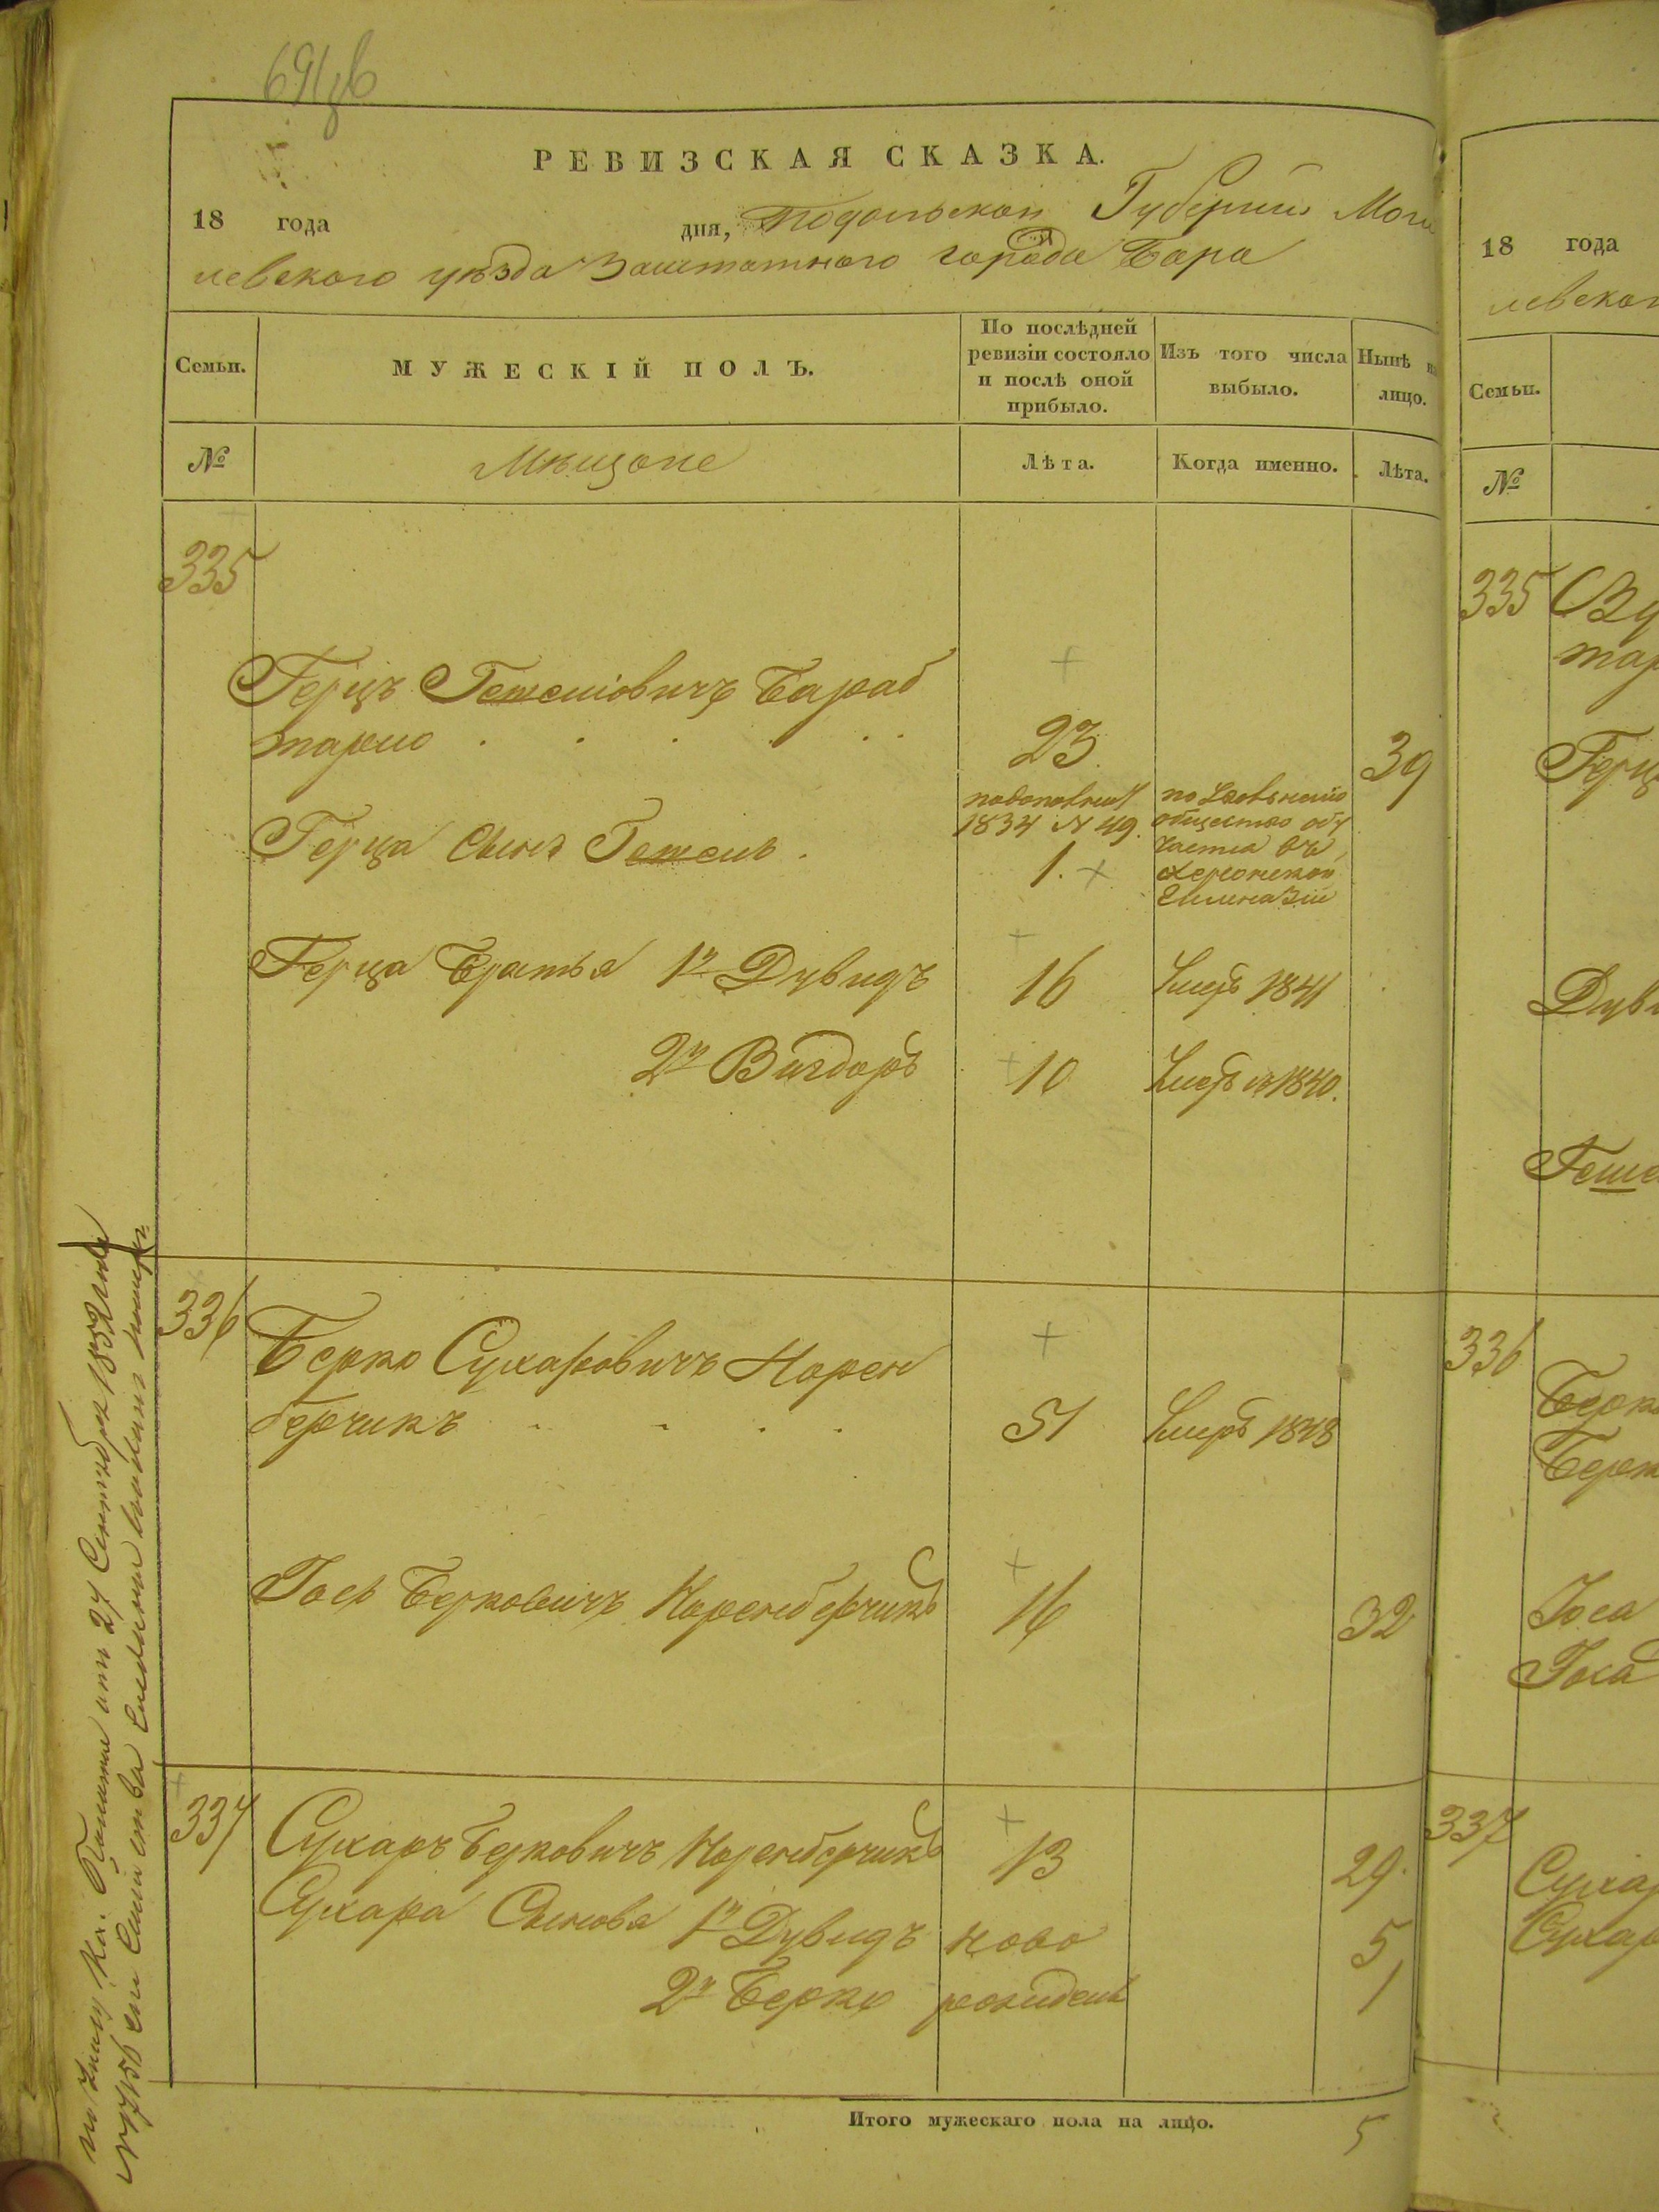 РЕВИЗСКАЯ СКАЗКА.
18 года дня, Подольской Губернии Моги
левского уѣзда Заштатного города Бара
Семьи.
МУЖЕСКІЙ ПОЛЪ.
По послѣдней
ревизіи состояло
и послѣ оной
прибыло.
Изъ того числа
выбыло.
Нынѣ на
лицо.
№
Мѣщане
Лѣта.
Когда именно.
Лѣта.
335
Герцъ Гешеліовичъ Бараб
тарло . . . . . .
23.
39
Герца Сынъ Гешель .
1834 N 49.
1.
общество обу
чается въ
Херсонской
Гимназіи
Герца Братья 1й Дувидъ
16
Умеръ 1841
2й Вигдоръ
10
Умеръ въ 1840.
336
Берко Сухаровичъ Норен
берчикъ . . . .
51
Умеръ 1848
Іось Берковичъ Норенберчикъ
16
32
337
Сухаръ Берковичъ Норенберчикъ
13
29.
Сухара Сыновья 1й Дувидъ
ново
5
2й Берко
рожиденъ
1
Итого мужескаго пола на лицо.
5
по Указу Каз. Палаты отъ 27 Сентября 1852 года
N 17156
18 года
левског
Семьи.
№
335
Герц
Дув
Геше
336
Берк
Іоса
Іоса
337
Сухар
Сухар